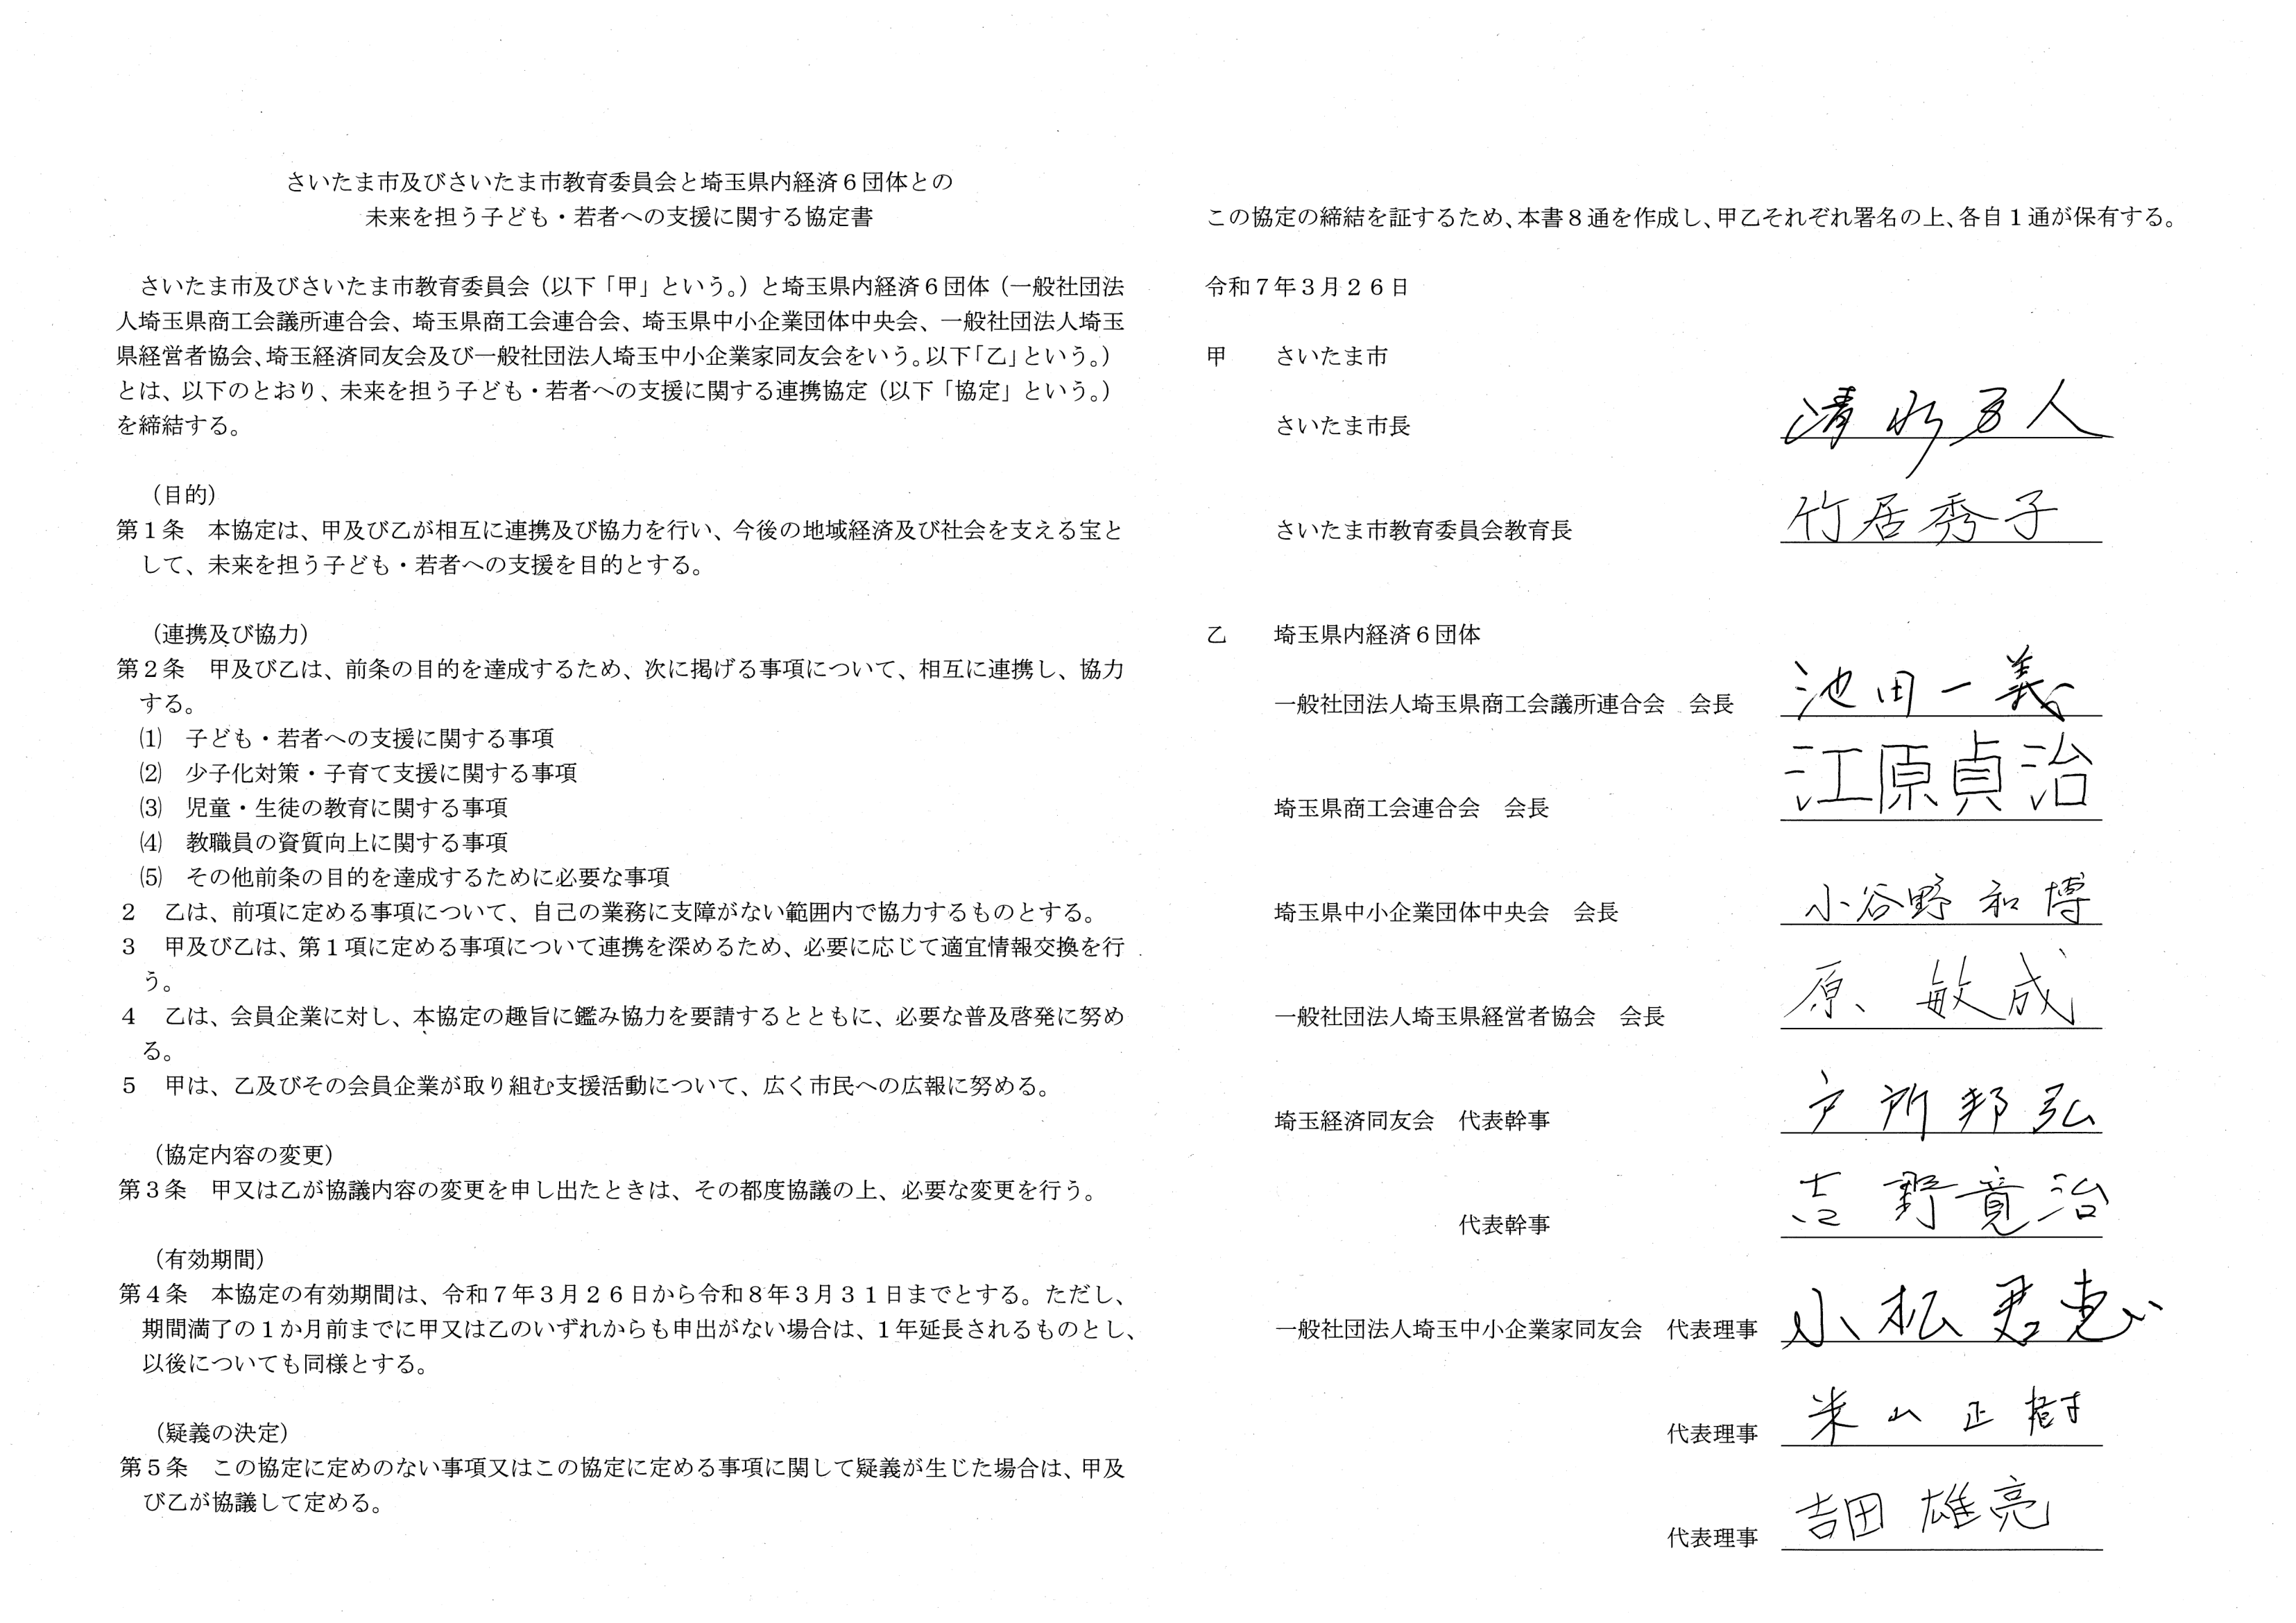 さいたま市及びさいたま市教育委員会と埼玉県内経済６団体との
未来を担う子ども・若者への支援に関する協定書
さいたま市及びさいたま市教育委員会（以下「甲」という。）と埼玉県内経済６団体（一般社団法
人埼玉県商工会議所連合会、埼玉県商工会連合会、埼玉県中小企業団体中央会、一般社団法人埼玉
県経営者協会、埼玉経済同友会及び一般社団法人埼玉中小企業家同友会をいう。以下「乙」という。）
とは、以下のとおり、未来を担う子ども・若者への支援に関する連携協定（以下「協定」という。）
を締結する。
（目的）
第１条　本協定は、甲及び乙が相互に連携及び協力を行い、今後の地域経済及び社会を支える宝と
して、未来を担う子ども・若者への支援を目的とする。
（連携及び協力）
第２条　甲及び乙は、前条の目的を達成するため、次に掲げる事項について、相互に連携し、協力
する。
⑴　子ども・若者への支援に関する事項
⑵　少子化対策・子育て支援に関する事項
⑶　児童・生徒の教育に関する事項
⑷　教職員の資質向上に関する事項
⑸　その他前条の目的を達成するために必要な事項
２　乙は、前項に定める事項について、自己の業務に支障がない範囲内で協力するものとする。
３　甲及び乙は、第１項に定める事項について連携を深めるため、必要に応じて適宜情報交換を行
う。
４　乙は、会員企業に対し、本協定の趣旨に鑑み協力を要請するとともに、必要な普及啓発に努め
る。
５　甲は、乙及びその会員企業が取り組む支援活動について、広く市民への広報に努める。
（協定内容の変更）
第３条　甲又は乙が協議内容の変更を申し出たときは、その都度協議の上、必要な変更を行う。
（有効期間）
第４条　本協定の有効期間は、令和７年３月２６日から令和８年３月３１日までとする。ただし、
期間満了の１か月前までに甲又は乙のいずれからも申出がない場合は、１年延長されるものとし、
以後についても同様とする。
（疑義の決定）
第５条　この協定に定めのない事項又はこの協定に定める事項に関して疑義が生じた場合は、甲及
び乙が協議して定める。
この協定の締結を証するため、本書８通を作成し、甲乙それぞれ署名の上、各自１通が保有する。
令和７年３月２６日
甲　さいたま市
さいたま市長　清水勇人
さいたま市教育委員会教育長　竹居秀子
乙　埼玉県内経済６団体
一般社団法人埼玉県商工会議所連合会　会長　池田一義
埼玉県商工会連合会　会長　江原貞治
埼玉県中小企業団体中央会　会長　小谷野和博
一般社団法人埼玉県経営者協会　会長　原敏成
埼玉経済同友会　代表幹事　戸所邦弘
代表幹事　吉野寛治
一般社団法人埼玉中小企業家同友会　代表理事　小松君恵
代表理事　米山正樹
代表理事　吉田雄亮